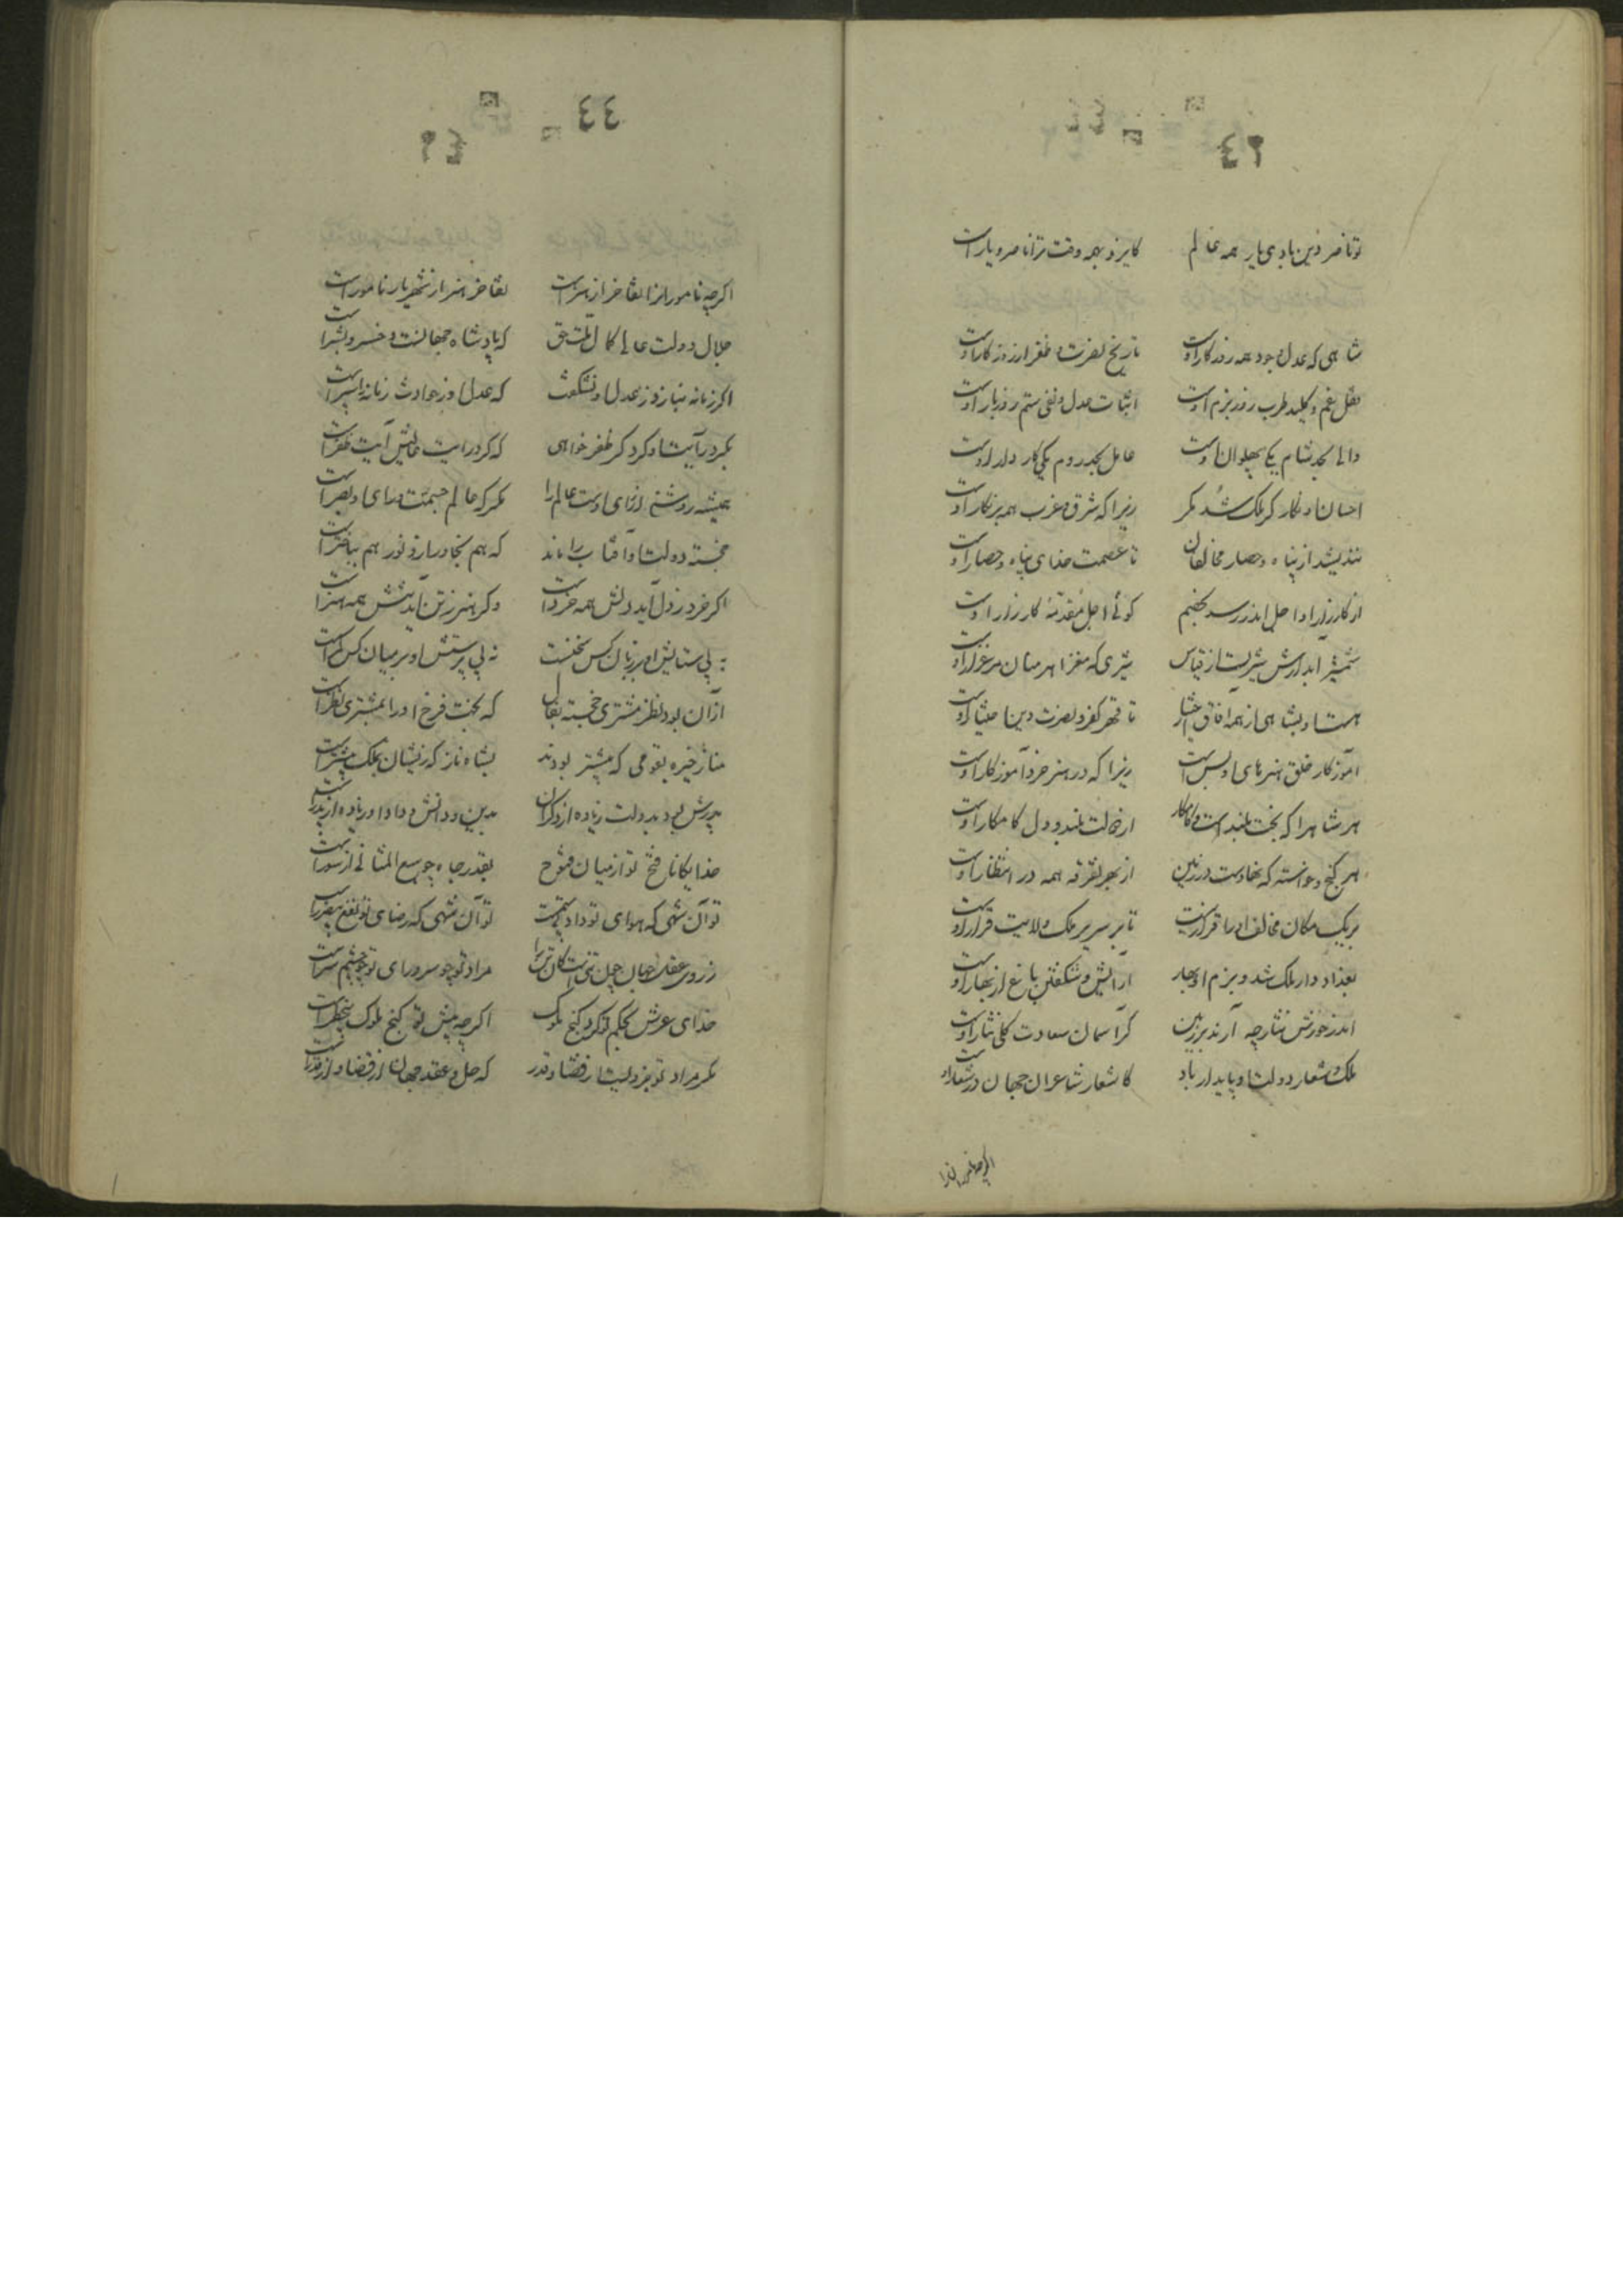 ٤٣
تو ناصر دین بادی یار همه عالم کایزد بهمه وقت ترا ناصر و یار است
شاهی که عدل و جود همه روزگار اوست تاریخ نصرت و ظفر از روزگار اوست
قفل غم و کلید طرب روز بزم اوست اثبات عدل و نفی ستم روز بار اوست
والی بحد شام یکی پهلوان اوست عامل بحد روم یکی کاردار اوست
احسان او نگار کر ملک شد مگر زیرا که شرق و غرب همه پرنگار اوست
نندیشد از پناه و حصار مخالفان تا عصمت خدای پناه و حصار اوست
از کارزار او اجل اندر رسد بخصم گوئی اجل مقدمهٔ کارزار اوست
شمشیر آبدارش شیریست از قیاس شیری که مغز اهرمنان مرغزار اوست
هست او بشاهی از همه آفاق اختیار تا قهر کفر و نصرت دین اختیار اوست
آموزگار خلق هنرهای او بس است زیرا که در هنر خرد آموزگار اوست
هر شاه را که بخت بلند است و کامکار از دولت بلند و دل کامکار اوست
هر گنج و خواسته که نهادست در زمین از بهر تفرقه همه در انتظار اوست
بر یک مکان مخالف او را قرار نیست تا بر سریر ملک ولایت قرار اوست
بغداد دار ملک شد و بزم او بهار آرایش و شکفتن باغ از بهار اوست
اندر خورش نثار چه آرند بر زمین کز آسمان سعادت کلی نثار اوست
ملک شعار دولت او پایدار باد کاشعار شاعران جهان در شعار اوست
اگرچه نامورانرا
٤٤
٤٣
اگرچه نامورانرا تفاخر از هنر است تفاخر هنر از شهریار نامور است
جلال دولت عالی کمال ملت حق که پادشاه جهانست و خسرو بشر است
اگر زمانه بنازد ز عدل او نشگفت که عدل او ز حوادث زمانه را سپر است
بگرد رایت او گرد گر ظفر خواهی که گرد رایت عالیش آیت ظفر است
همیشه روشنی از رای اوست عالم را مگر که عالم چشمست و رای او بصر است
خجسته دولت او آفتاب را ماند که هم بخاور ازو نور هم بباختر است
اگر خرد ز دل آید دلش همه خرد است وگر هنر ز تن آید تنش همه هنر است
نه بی ستایش او بر زبان کس سخنست نه بی پرستش او بر میان کس کمر است
از آن بود نظر مشتری خجسته بفال که بخت فرخ او را بمشتری نظر است
مناز خیره بقومی که پیشتر بودند بشاه ناز که زیشان بملک بیشتر است
پدرش بود بدولت زیاده از دگران بدین و دانش و داد او زیاده از پدر است
خدایگانا فتح تو از میان فتوح بقدر و جاه چو سبع المثانی از سور است
تو آن شهی که هوای تو داد بی ستمست تو آن شهی که رضای تو نفع بی ضرر است
ز روی عقل جهان چون تنی است کان تن را مراد تو چو سر و رای تو چو چشم سر است
خدای عرش بحکم تو کرد گنج ملوک اگرچه پیش تو گنج ملوک بیخطر است
مگر مراد تو جزویست از قضا و قدر که حل و عقد جهان از قضا و از قدر است